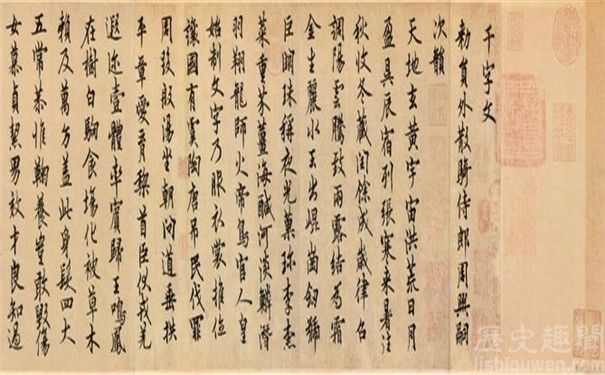 千字文
勅員外散騎侍郎周興嗣
次韻
天地玄黃宇宙洪荒日月
盈昃辰宿列張寒来暑往
秋收冬藏閏餘成歲律呂
調陽雲騰致雨露結為霜
金生麗水玉出崐崗劒號
巨闕珠稱夜光菓珍李柰
菜重芥薑海醎河淡鱗潛
羽翔龍師火帝鳥官人皇
始制文字乃服衣裳推位
讓國有虞陶唐弔民伐罪
周發殷湯坐朝問道垂拱
平章愛育黎首臣伏戎羌
遐迩壹體率賓歸王鳴鳳
在樹白駒食場化被草木
賴及萬方盖此身髮四大
五常恭惟鞠養豈敢毀傷
女慕貞潔男效才良知過
歷史趣聞
lishiquwen.com